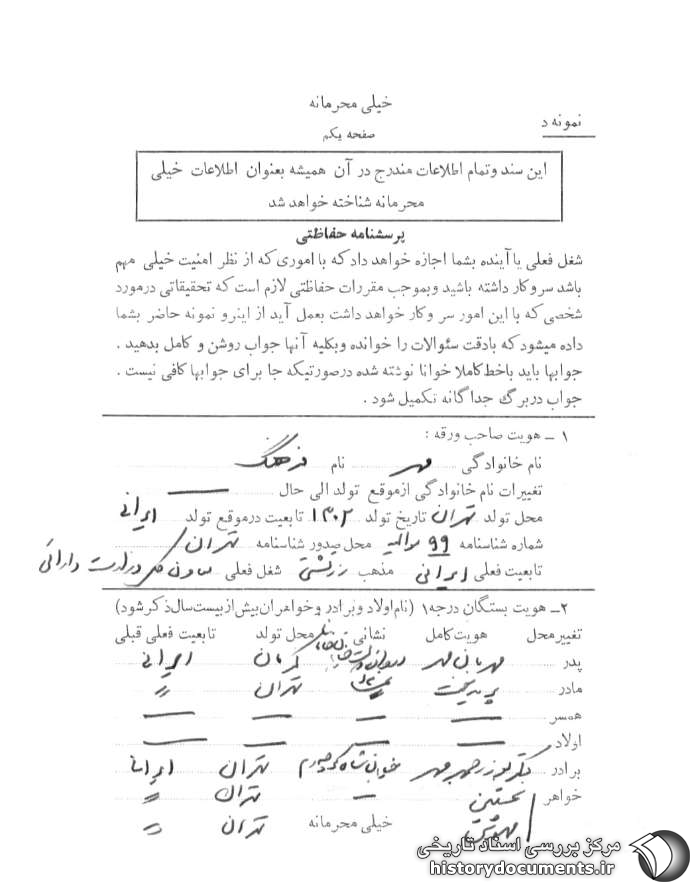 خیلی محرمانه
نمونه د
صفحه یکم
این سند وتمام اطلاعات مندرج در آن همیشه بعنوان اطلاعات خیلی
محرمانه شناخته خواهد شد
پرسشنامه حفاظتی
شغل فعلی یا آینده بشما اجازه خواهد داد که با اموری که از نظر امنیت خیلی مهم
باشد سروکار داشته باشید وبموجب مقررات حفاظتی لازم است که تحقیقاتی درمورد
شخصی که با این امور سر وکار خواهد داشت بعمل آید از اینرو نمونه حاضر بشما
داده میشود که بادقت سئوالات را خوانده وبکلیه آنها جواب روشن و کامل بدهید .
جوابها باید باخط کاملا خوانا نوشته شده درصورتیکه جا برای جوابها کافی نیست .
جواب دربرگ جداگانه تکمیل شود .
۱ ــ هویت صاحب ورقه :
نام خانوادگی مهر نام فرهنگ
تغییرات نام خانوادگی ازموقع تولد الی حال
محل تولد تهران تاریخ تولد ۱۳۰۲ تابعیت درموقع تولد ایرانی
شماره شناسنامه ۹۹ محل صدور شناسنامه تهران
تابعیت فعلی ایرانی مذهب زرتشتی شغل فعلی معاون کل وزارت دارائی
۲ــ هویت بستگان درجه۱ (نام اولاد وبرادر وخواهران بیش از بیست سال ذکر شود)
تغییر محل هویت کامل نشانی محل تولد تابعیت فعلی قبلی
پدر مهربان مهر کرمان ایرانی
مادر پریدخت تهران "
همسر
اولاد
برادر مهر تهران ایرانی
خواهر تهران "
مهوش خیلی محرمانه تهران "
مرکز بررسی اسناد تاریخی
historydocuments.ir